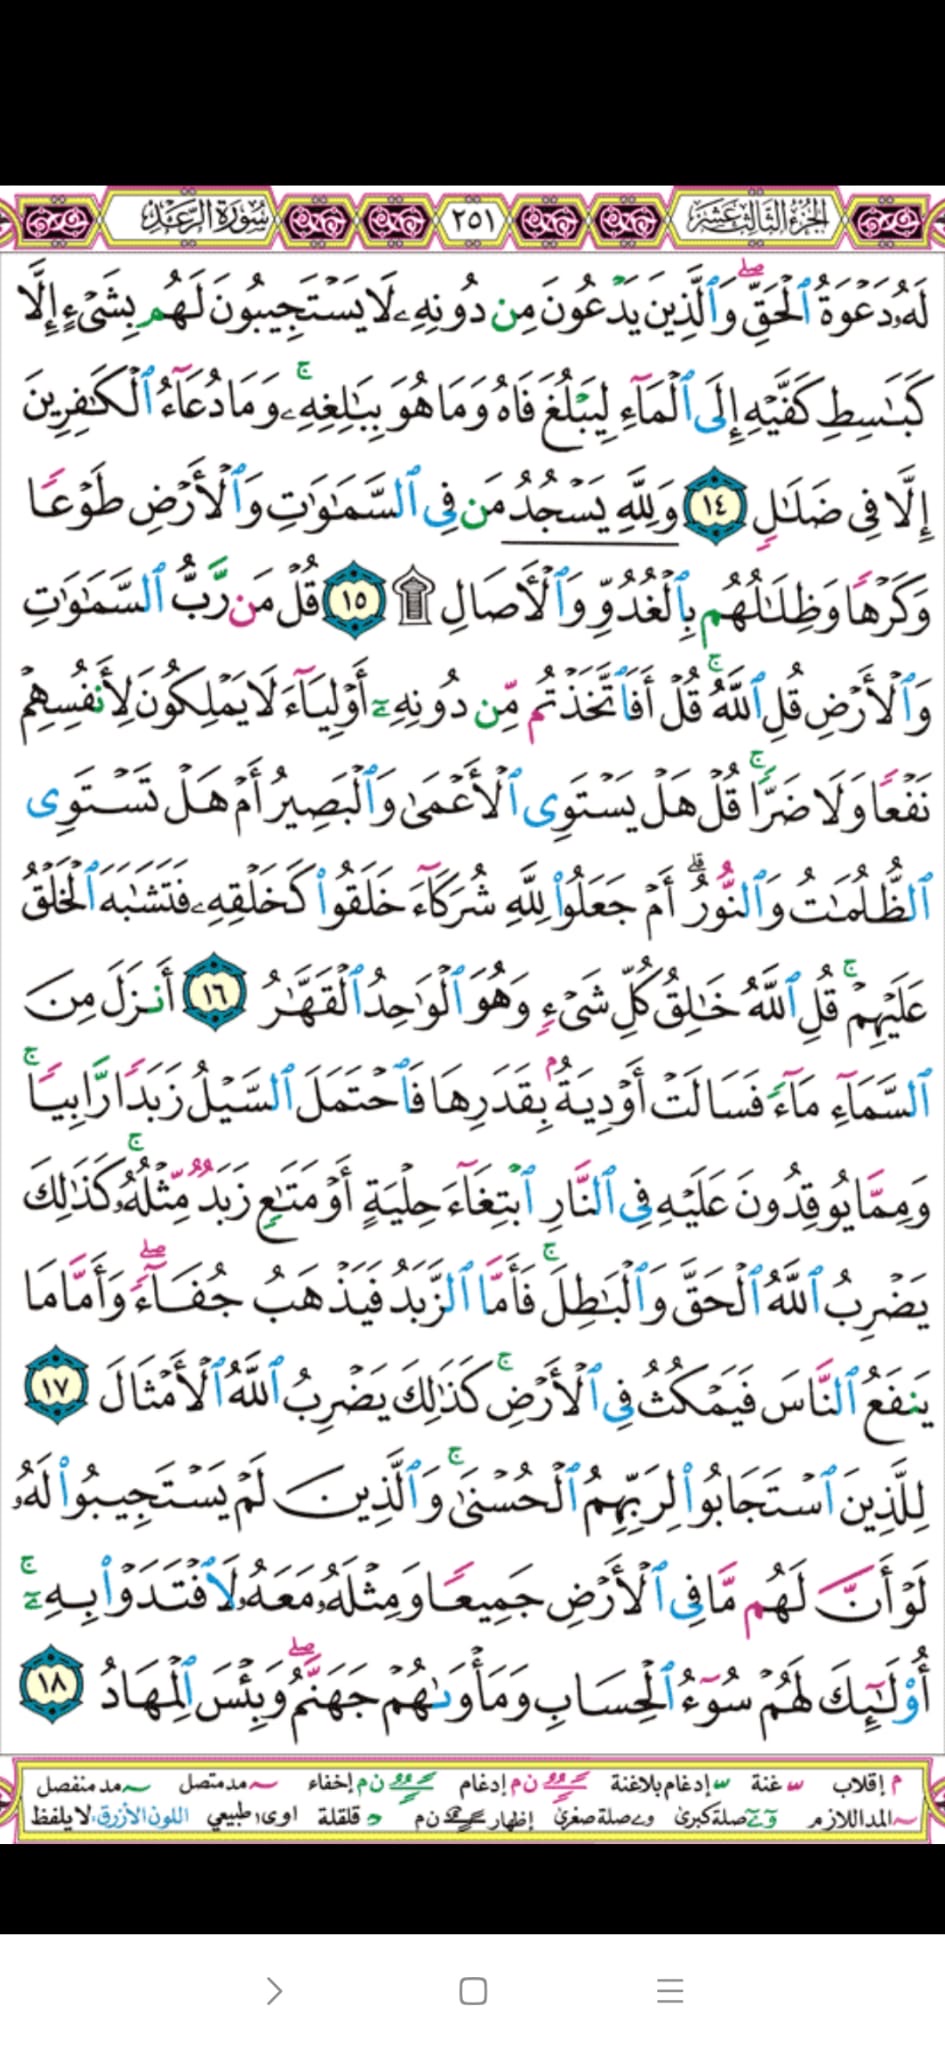 الجزء الثالث عشر
٢٥١
سورة الرعد
لَهُۥ دَعْوَةُ ٱلْحَقِّ ۖ وَٱلَّذِينَ يَدْعُونَ مِن دُونِهِۦ لَا يَسْتَجِيبُونَ لَهُم بِشَىْءٍ إِلَّا
كَبَـٰسِطِ كَفَّيْهِ إِلَى ٱلْمَآءِ لِيَبْلُغَ فَاهُ وَمَا هُوَ بِبَـٰلِغِهِۦ ۚ وَمَا دُعَآءُ ٱلْكَـٰفِرِينَ
إِلَّا فِى ضَلَـٰلٍ ١٤ وَلِلَّهِ يَسْجُدُ مَن فِى ٱلسَّمَـٰوَٰتِ وَٱلْأَرْضِ طَوْعًا
وَكَرْهًا وَظِلَـٰلُهُم بِٱلْغُدُوِّ وَٱلْـَٔاصَالِ ۩ ١٥ قُلْ مَن رَّبُّ ٱلسَّمَـٰوَٰتِ
وَٱلْأَرْضِ قُلِ ٱللَّهُ ۚ قُلْ أَفَٱتَّخَذْتُم مِّن دُونِهِۦٓ أَوْلِيَآءَ لَا يَمْلِكُونَ لِأَنفُسِهِمْ
نَفْعًا وَلَا ضَرًّا ۚ قُلْ هَلْ يَسْتَوِى ٱلْأَعْمَىٰ وَٱلْبَصِيرُ أَمْ هَلْ تَسْتَوِى
ٱلظُّلُمَـٰتُ وَٱلنُّورُ ۗ أَمْ جَعَلُوا۟ لِلَّهِ شُرَكَآءَ خَلَقُوا۟ كَخَلْقِهِۦ فَتَشَـٰبَهَ ٱلْخَلْقُ
عَلَيْهِمْ ۚ قُلِ ٱللَّهُ خَـٰلِقُ كُلِّ شَىْءٍ وَهُوَ ٱلْوَٰحِدُ ٱلْقَهَّـٰرُ ١٦ أَنزَلَ مِنَ
ٱلسَّمَآءِ مَآءً فَسَالَتْ أَوْدِيَةٌۢ بِقَدَرِهَا فَٱحْتَمَلَ ٱلسَّيْلُ زَبَدًا رَّابِيًا ۚ
وَمِمَّا يُوقِدُونَ عَلَيْهِ فِى ٱلنَّارِ ٱبْتِغَآءَ حِلْيَةٍ أَوْ مَتَـٰعٍ زَبَدٌ مِّثْلُهُۥ ۚ كَذَٰلِكَ
يَضْرِبُ ٱللَّهُ ٱلْحَقَّ وَٱلْبَـٰطِلَ ۚ فَأَمَّا ٱلزَّبَدُ فَيَذْهَبُ جُفَآءً ۖ وَأَمَّا مَا
يَنفَعُ ٱلنَّاسَ فَيَمْكُثُ فِى ٱلْأَرْضِ ۚ كَذَٰلِكَ يَضْرِبُ ٱللَّهُ ٱلْأَمْثَالَ ١٧
لِلَّذِينَ ٱسْتَجَابُوا۟ لِرَبِّهِمُ ٱلْحُسْنَىٰ ۚ وَٱلَّذِينَ لَمْ يَسْتَجِيبُوا۟ لَهُۥ
لَوْ أَنَّ لَهُم مَّا فِى ٱلْأَرْضِ جَمِيعًا وَمِثْلَهُۥ مَعَهُۥ لَٱفْتَدَوْا۟ بِهِۦٓ ۚ
أُو۟لَـٰٓئِكَ لَهُمْ سُوٓءُ ٱلْحِسَابِ وَمَأْوَىٰهُمْ جَهَنَّمُ ۖ وَبِئْسَ ٱلْمِهَادُ ١٨
م إقلاب س غنة س إدغام بلاغنة ن م إدغام ن م إخفاء ~ مد متصل ~ مد منفصل
~ المد اللازم صلة كبرى و ے صلة صغرى إظهار ن م د قلقلة اوى طبيعي اللون الأزرق لا يلفظ